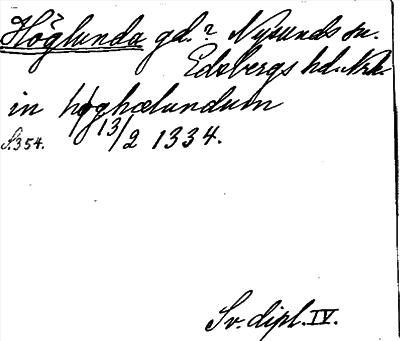 Höglunda gd.? Nysunds sn.
Edsbergs hd. Nrk.
in høghælundum
S.354. 13/2 1334.
Sv. dipl. IV.